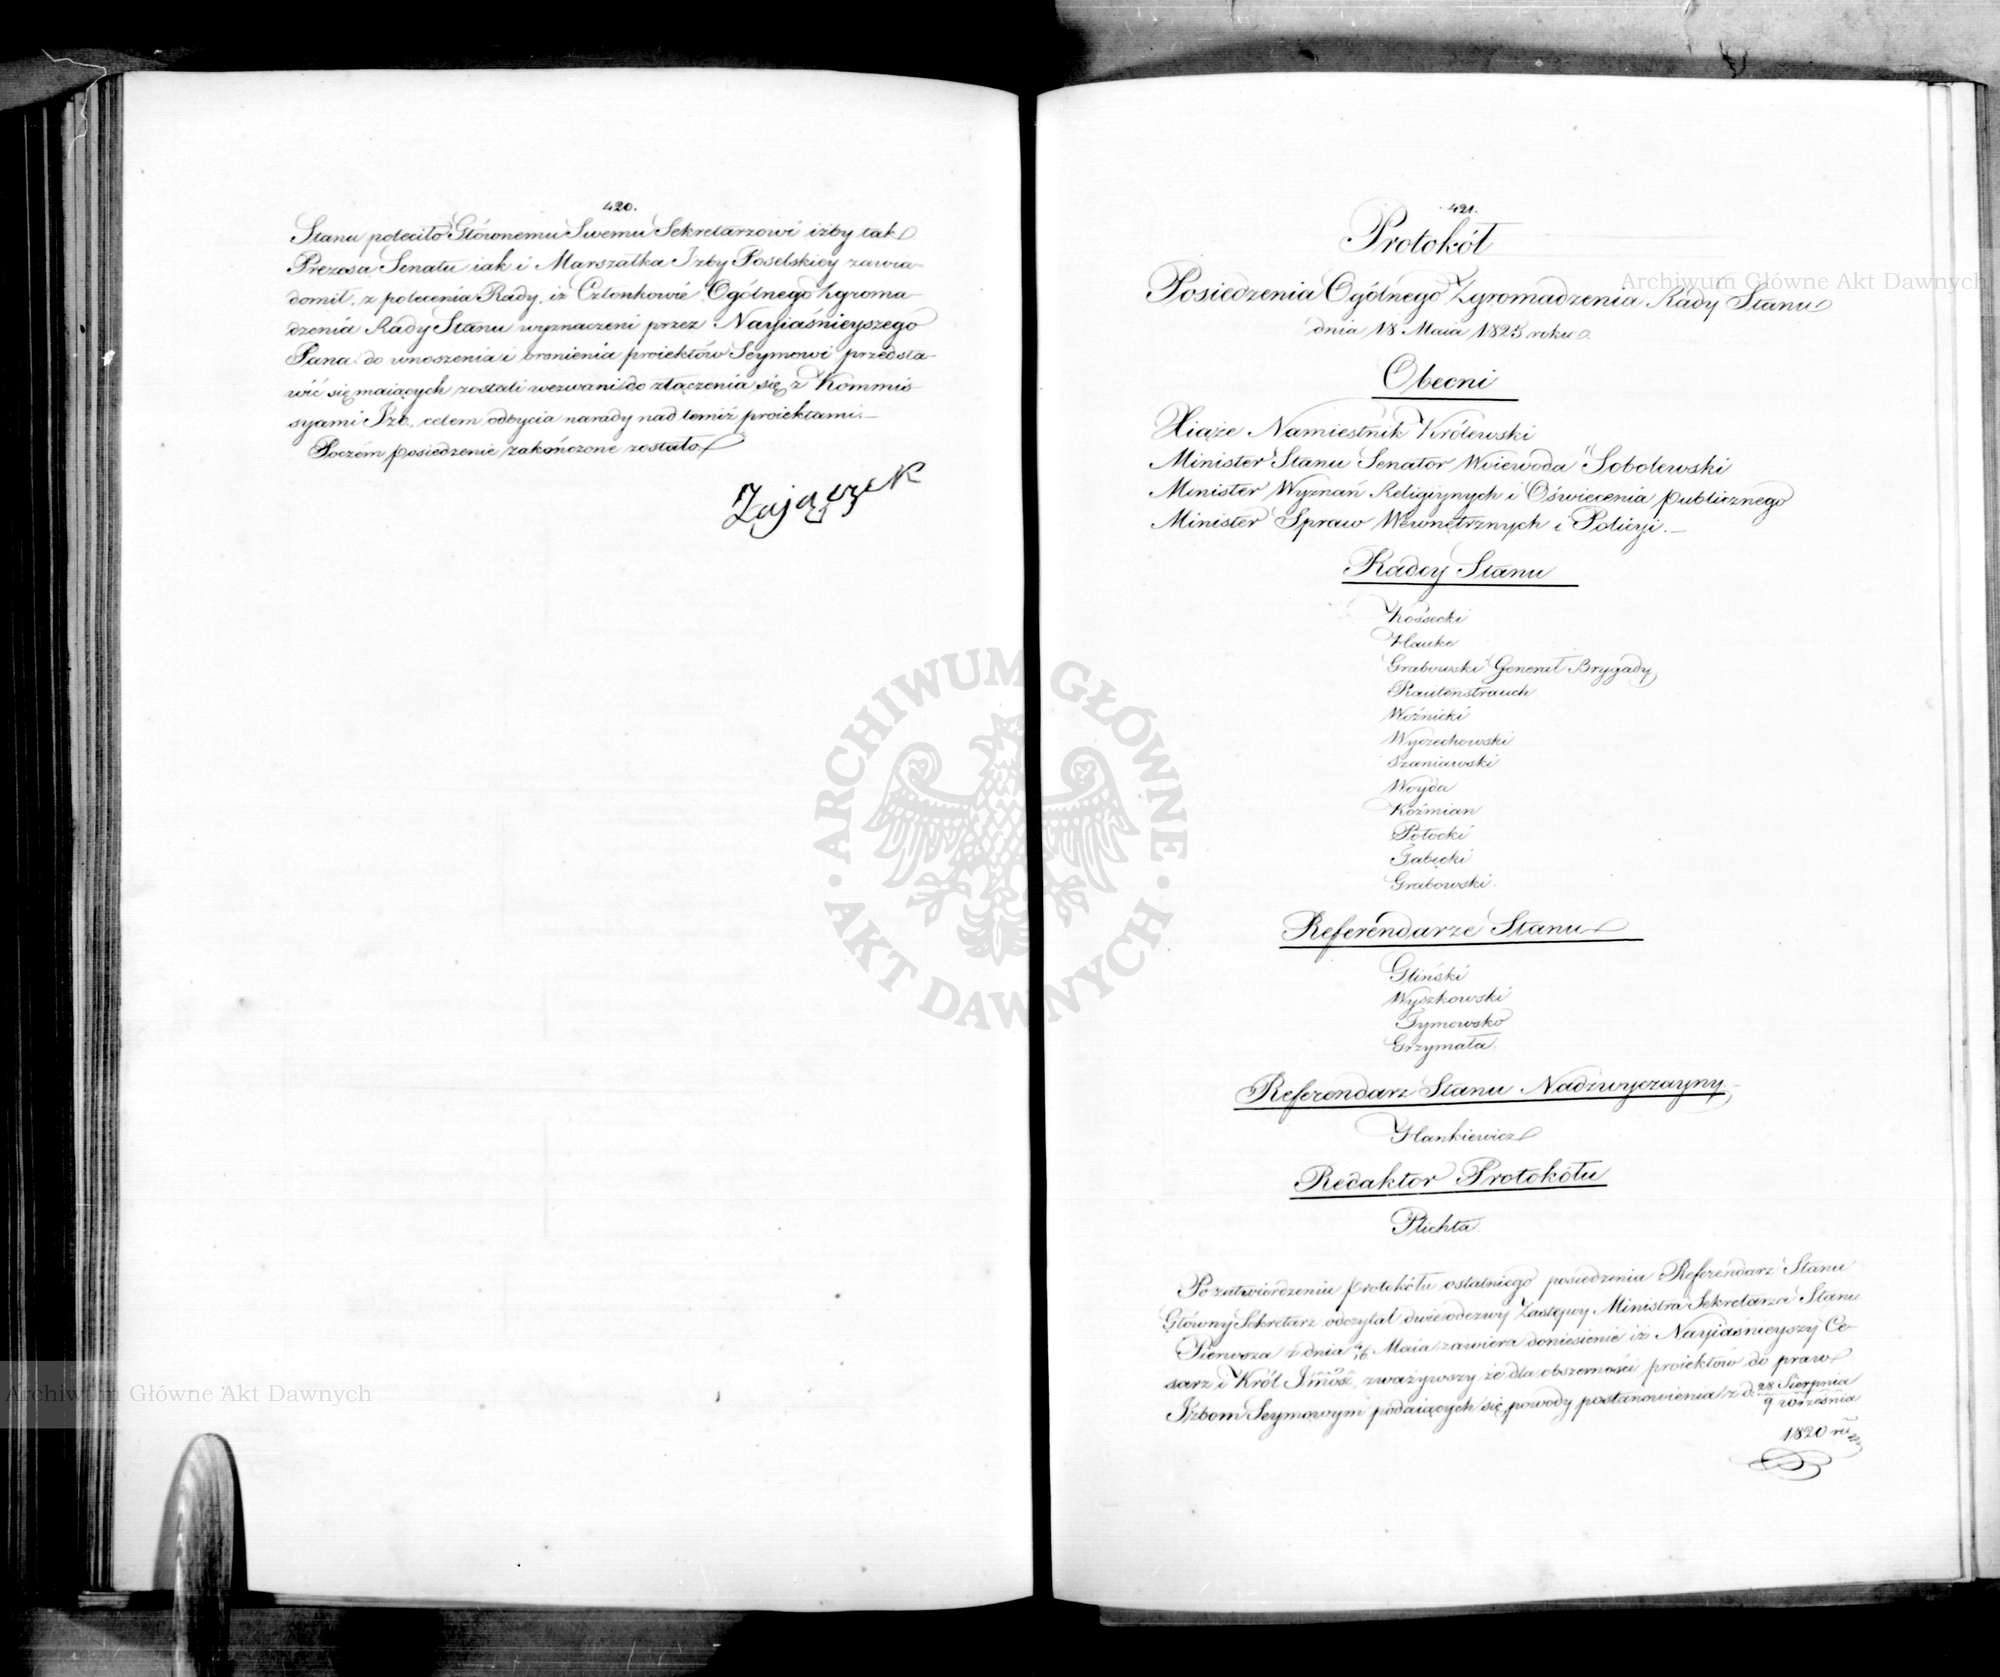 420.
Stanu poleciło Głównemu Swemu Sekretarzowi iżby tak
Prezesa Senatu iak i Marszałka Izby Poselskiey zawia-
domił, z polecenia Rady, iż Członkowie Ogólnego Zgroma-
dzenia Rady Stanu wyznaczeni przez Nayiaśnieyszego
Pana do wnoszenia i bronienia proiektów Seymowi przedsta-
wić się maiących zostali wezwani do złączenia się z Kommis-
syami Izb, celem odbycia narady nad temiż proiektami.—
Poczém posiedzenie zakończone zostało
Zajączek
421.
Protokół
Posiedzenia Ogólnego Zgromadzenia Rady Stanu
dnia 18 Maia 1825 roku.
Obecni
Xiąże Namiestnik Królewski
Minister Stanu Senator Woiewoda Sobolewski
Minister Wyznań Religiynych i Oświecenia publicznego
Minister Spraw Wewnętrznych i Policyi.—
Radcy Stanu
Kossecki
Hauke
Grabowski Generał Brygady
Rautenstrauch
Woźnicki
Wyczechowski
Szaniawski
Woyda
Koźmian
Potocki
Gabęcki
Grabowski.
Referendarze Stanu
Gliński
Wyszkowski
Tymowsko
Grzymała.
Referendarz Stanu Nadzwyczayny.
Hankiewicz
Redaktor Protokółu
Plichta.
Po zatwierdzeniu protokółu ostatniego posiedzenia Referendarz Stanu
Główny Sekretarz odczytał dwie odezwy Zastępcy Ministra Sekretarza Stanu
Pierwsza z dnia 4/16 Maia zawiera doniesienie iż Nayiaśnieyszy Ce-
sarz i Król Jmość, zważywszy że dla obszerności proiektów do praw
Izbom Seymowym podaiących się, powody postanowienia z d. 28 Sierpnia
9 września
1820 ru
Archiwum Główne Akt Dawnych
Archiwum Główne Akt Dawnych
ARCHIWUM GŁÓWNE AKT DAWNYCH